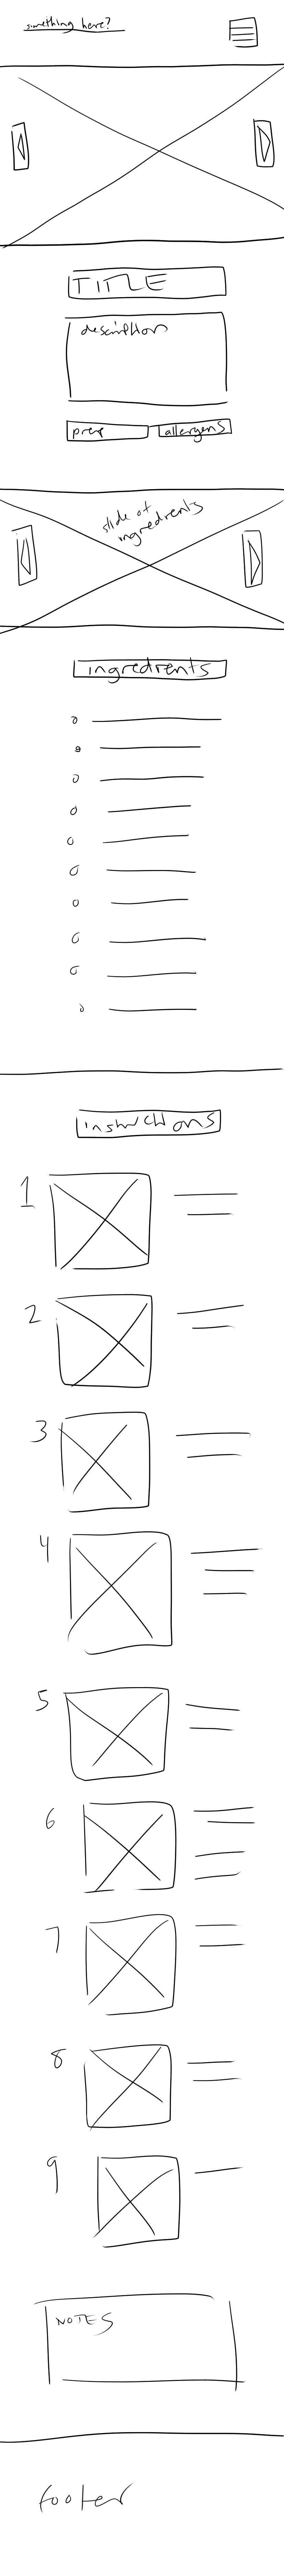 something here?
TITLE
description
prep
allergens
slide of
ingredients
ingredients
instructions
1
2
3
4
5
6
7
8
9
NOTES
footer